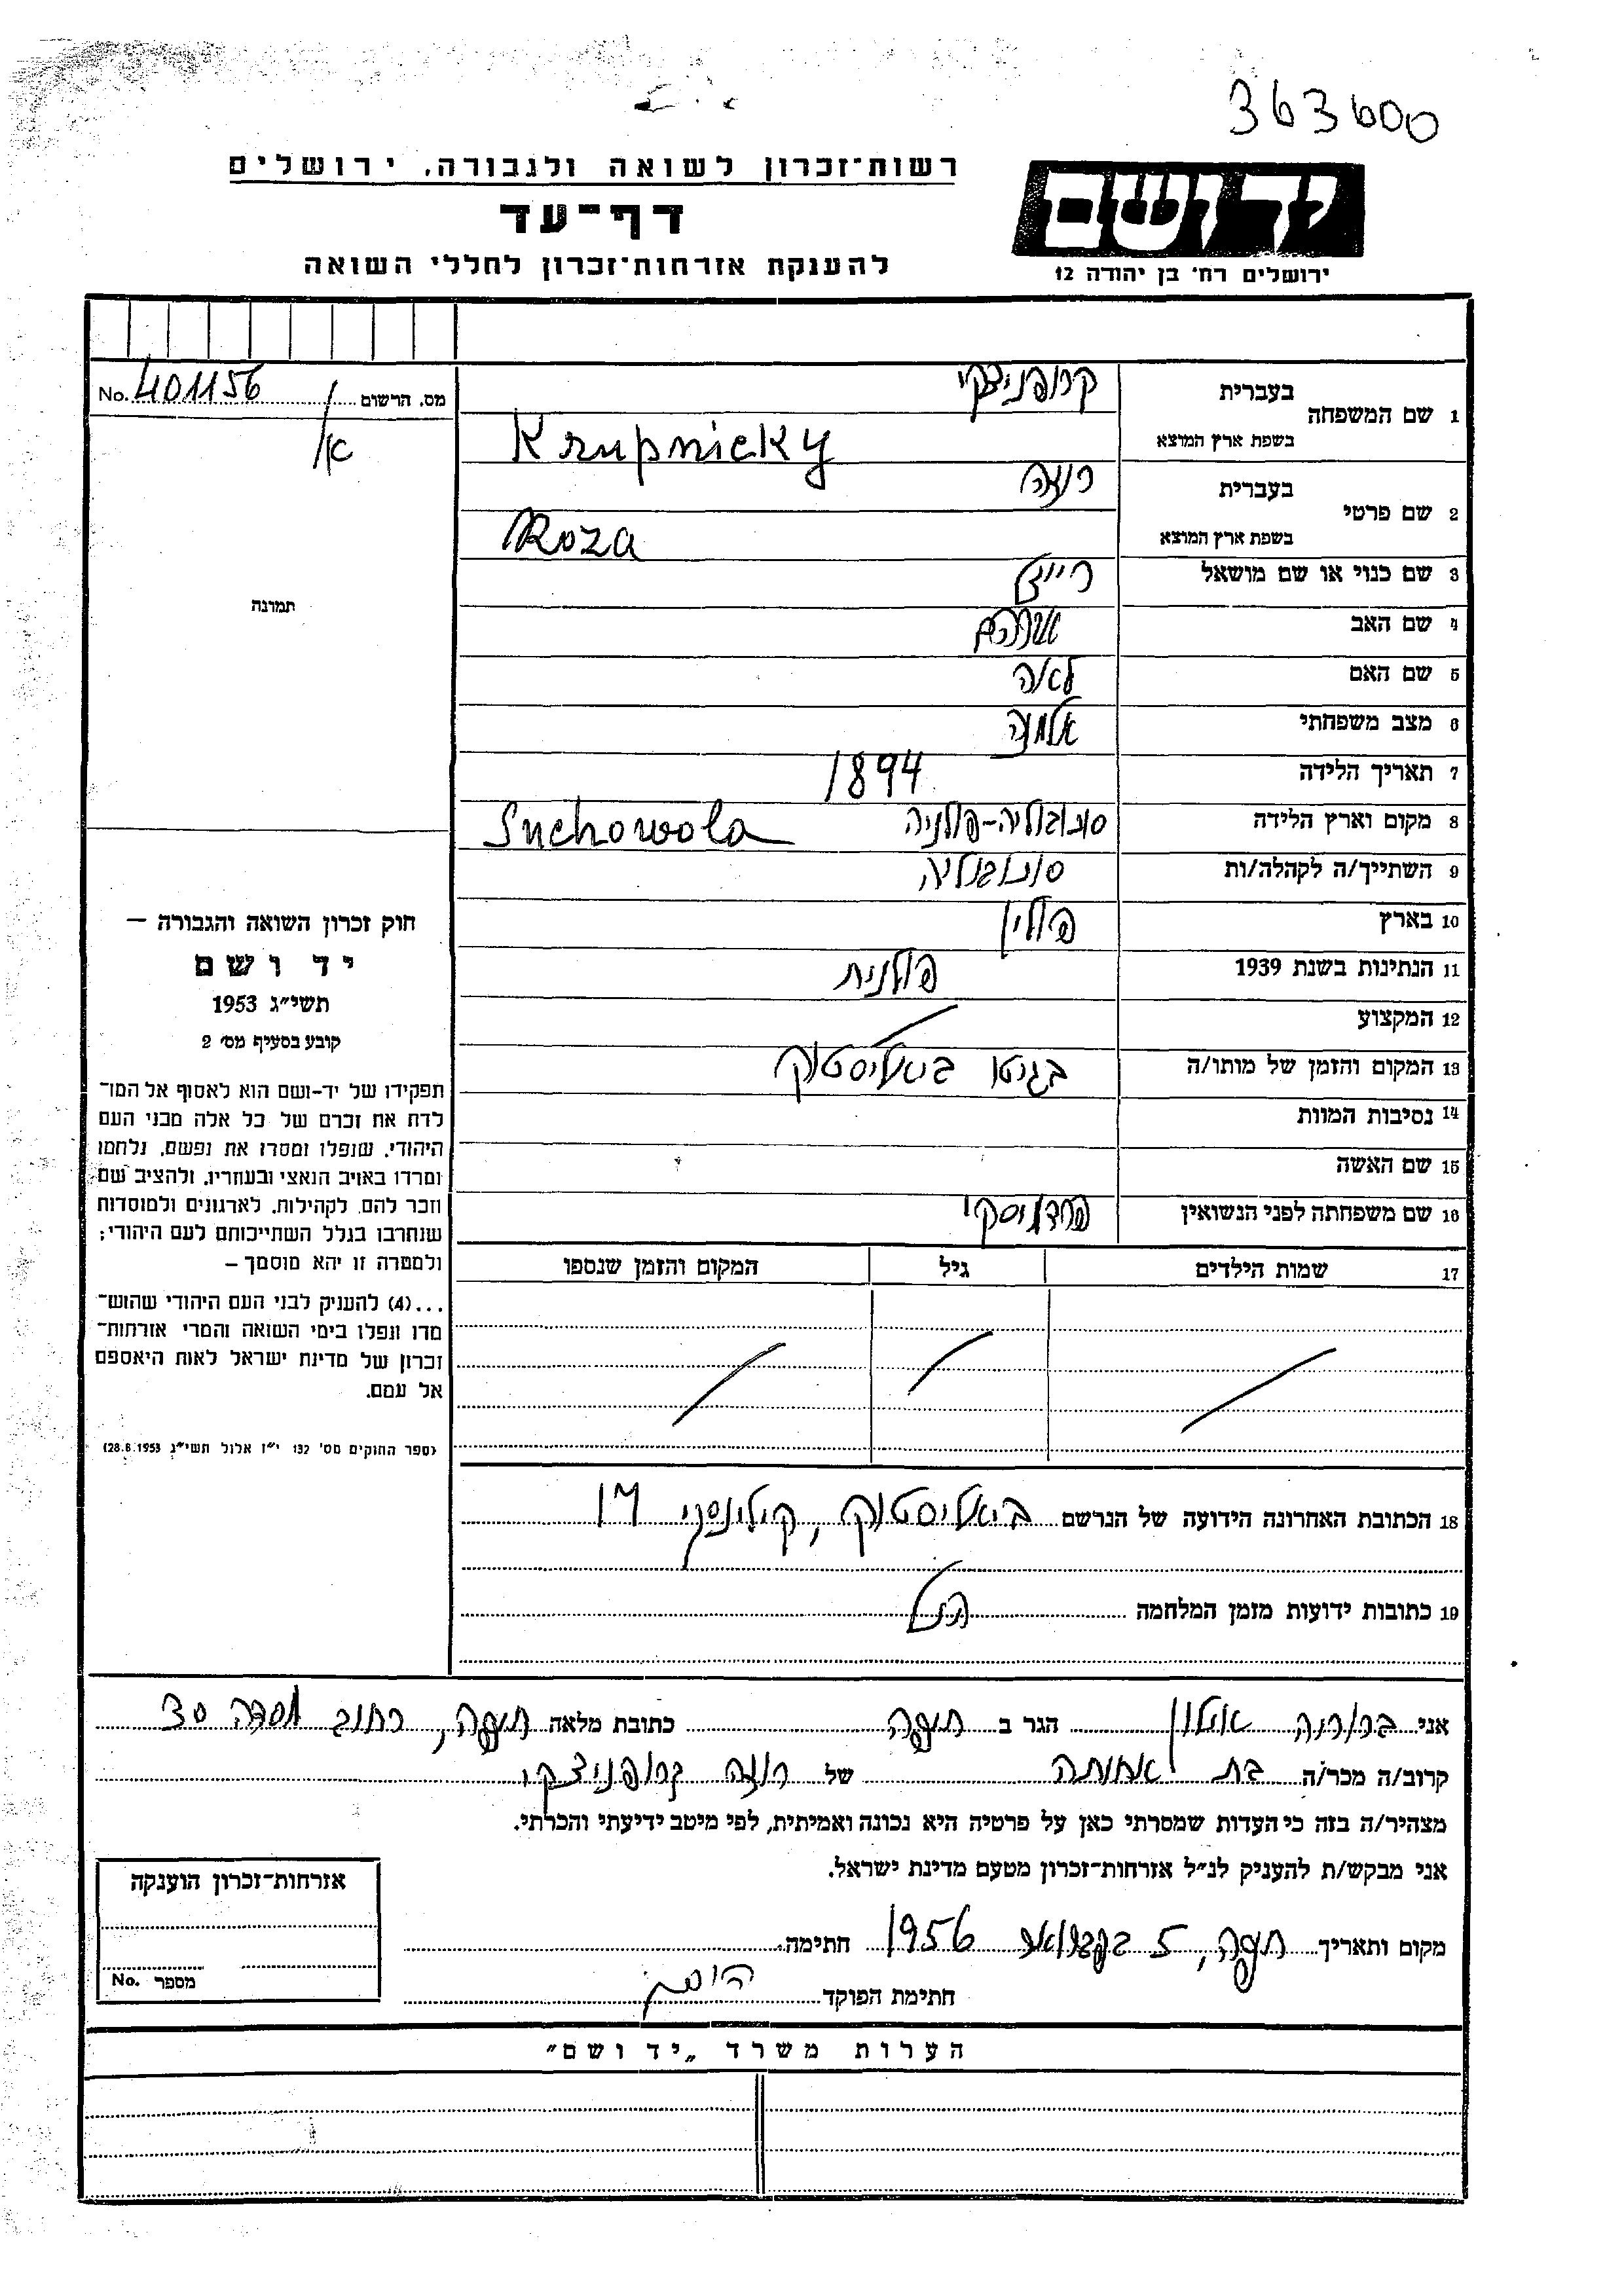 363600
רשות־זכרון לשואה ולגבורה, ירושלים
יד ושם
דף־עד
להענקת אזרחות־זכרון לחללי השואה
ירושלים רח' בן יהודה 12
מס. הרשום No. 401156
א/
תמונה
1 שם המשפחה
בעברית קרופניצקי
בשפת ארץ המוצא Krupnicky
2 שם פרטי
בעברית רוזה
בשפת ארץ המוצא Roza
3 שם כנוי או שם מושאל
4 שם האב אברהם
5 שם האם לאה
6 מצב משפחתי אלמנה
7 תאריך הלידה 1894
8 מקום וארץ הלידה סוכובוליה-פולניה Suchowola
9 השתייך/ה לקהלה/ות סוכובוליה
10 בארץ פולין
11 הנתינות בשנת 1939 פולנית
12 המקצוע
13 המקום והזמן של מותו/ה בגיטו ביאליסטוק
14 נסיבות המוות
15 שם האשה
16 שם משפחתה לפני הנשואין
17 שמות הילדים גיל המקום והזמן שנספו
חוק זכרון השואה והגבורה —
יד ושם
תשי״ג 1953
קובע בסעיף מס׳ 2
תפקידו של יד-ושם הוא לאסוף אל המו־
לדת את זכרם של כל אלה מבני העם
היהודי, שנפלו ומסרו את נפשם, נלחמו
ומרדו באויב הנאצי ובעוזריו, ולהציב שם
וזכר להם, לקהילות, לארגונים ולמוסדות
שנחרבו בגלל השתייכותם לעם היהודי;
ולמטרה זו יהא מוסמך —
...(4) להעניק לבני העם היהודי שהוש־
מדו ונפלו בימי השואה והמרי אזרחות־
זכרון של מדינת ישראל לאות היאספם
אל עמם.
(ספר החוקים מס׳ 132 י״ז אלול תשי״ג 28.8.1953)
18 הכתובת האחרונה הידועה של הנרשם ביאליסטוק, קילינסקי 17
19 כתובות ידועות מזמן המלחמה הנ״ל
אני ברוריה אילון הגר ב חיפה כתובת מלאה חיפה, רחוב מסדה 30
קרוב/ה מכר/ה בת אחותה של רוזה קרופניצקי
מצהיר/ה בזה כי העדות שמסרתי כאן על פרטיה היא נכונה ואמיתית, לפי מיטב ידיעתי והכרתי.
אני מבקש/ת להעניק לנ״ל אזרחות־זכרון מטעם מדינת ישראל.
מקום ותאריך חיפה, 5 בפברואר 1956 חתימה
חתימת הפוקד
אזרחות־זכרון הוענקה
מספר No.
הערות משרד „יד ושם״